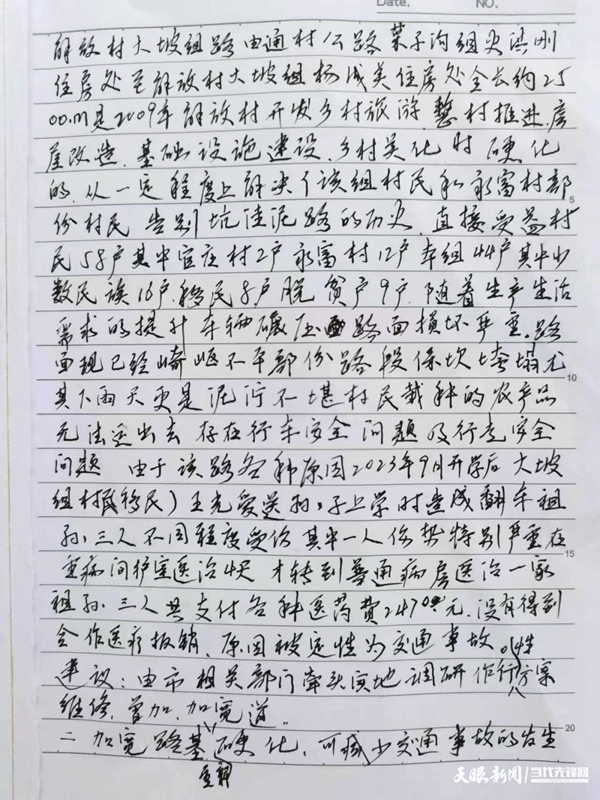 Date. NO.
解放村大坡组路由通村公路菜子沟组吴洪刚
住房处至解放村大坡组杨成美住房处全长约25
00.m是2009年解放村开发乡村旅游.整村推进.房
屋改造.基础设施建设.乡村美化时硬化
的.从一定程度上解决了该组村民和永富村部
份村民告别坑洼泥路的历史.直接受益村
民58户其中官庄村2户永富村12户本组44户其中少
数民族16户.移民8户脱贫户9户.随着生产生活
需求的提升车辆碾压路面损坏严重.路
面现已经崎岖不平部份路段保坎垮塌尤
其下雨天更是泥泞不堪村民栽种的农产品
无法运出去存在行车安全问题及行走安全
问题 由于该路各种原因2023年9月开学后大坡
组村民(移民)王光爱送孙子上学时造成翻车祖
孙三人不同程度受伤其中一人伤势特别严重在
重病间护室医治4天才转到普通病房医治一家
祖孙三人共支付各种医药费24700元.没有得到
合作医疗报销.原因被定性为交通事故.
建议:由市相关部门牵头实地调研作可行性方案
维修.增加.加宽道.
二 加宽路基重新硬化,可减少交通事故的发生
5
10
15
20
天眼新闻|当代先锋网